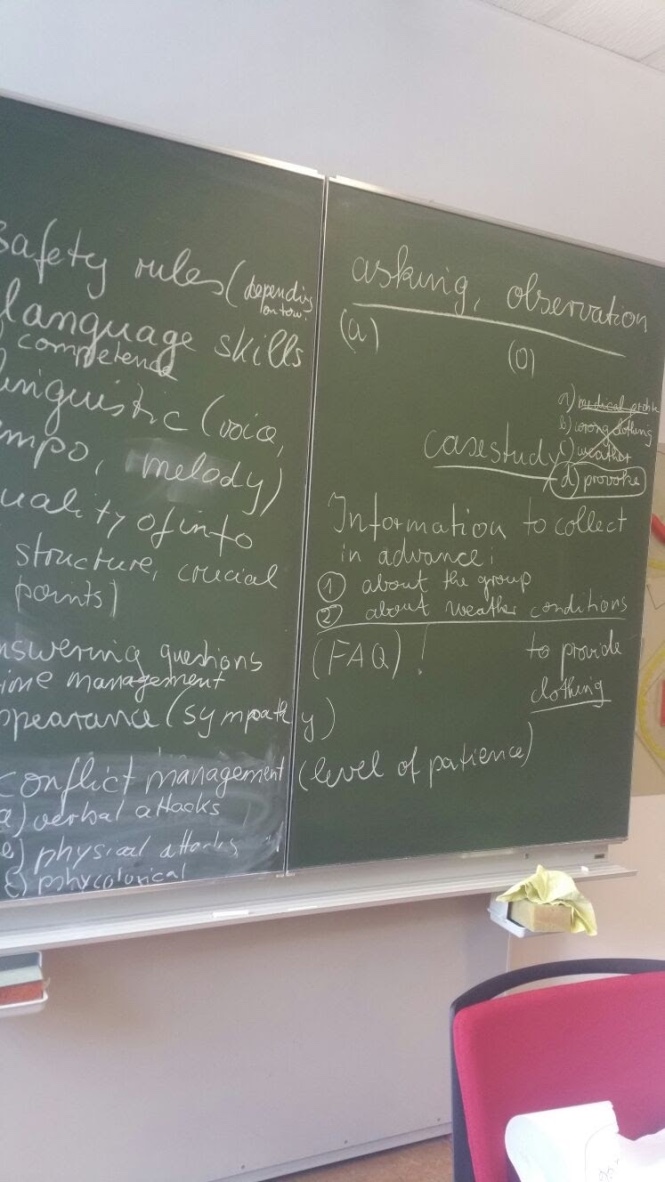 safety rules (depending
on tour
language skills
competence
linguistic (voice,
mpo, melody)
uality of info
structure, crucial
points)
nswering questions
ime management
ppearance (sympathy)
conflict management (level of patience)
a) verbal attacks
physical attacks
asking, observation
(a)
(o)
a) medical
b) wrong clothing
c) weather
d) provoke
casestudy
Information to collect
in advance:
① about the group
② about weather conditions
(FAQ)!
to provide
clothing